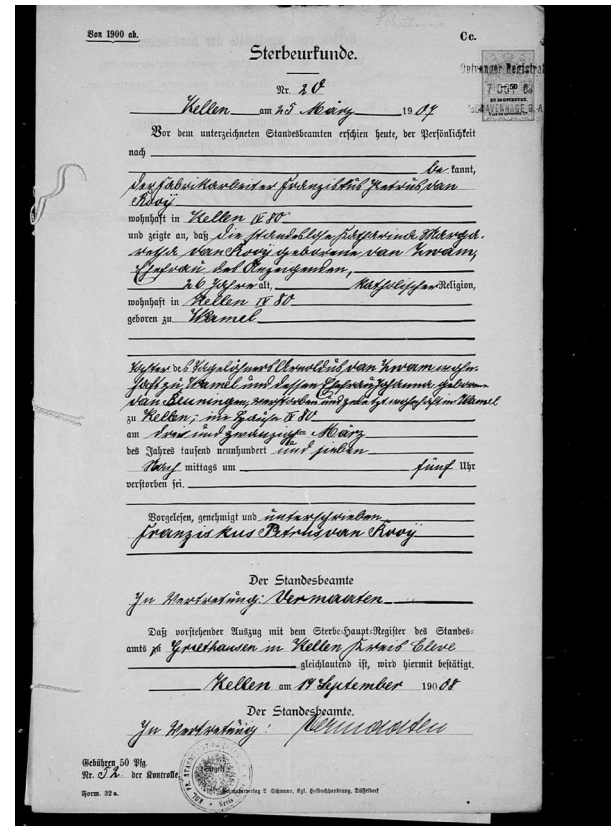 Von 1900 ab.
Cc.
Sterbeurkunde.
Nr. 20
Kellen am 25 März 1907
Vor dem unterzeichneten Standesbeamten erschien heute, der Persönlichkeit
nach
be kannt,
der Fabrikarbeiter Franziskus Petrus van
Kooÿ
wohnhaft in Kellen IV 80
und zeigte an, daß die standeslose Katharina Marga-
retha van Kooÿ geborene van Zwam,
Ehefrau des Anzeigenden,
26 Jahre alt, katholischer Religion,
wohnhaft in Kellen IV 80
geboren zu Wamel
Tochter des Tagelöhners Arnoldus van Zwam wohn-
haft zu Wamel und dessen Ehefrau Johanna geborene
van Beuningen, verstorben und zuletzt wohnhaft in Wamel
zu Kellen, im Hause IV 80
am drei und zwanzigsten März
des Jahres tausend neunhundert und sieben
Nach mittags um fünf Uhr
verstorben sei.
Vorgelesen, genehmigt und unterschrieben
Franziskus Petrus van Kooÿ
Der Standesbeamte
In Vertretung: Vermaaten
Daß vorstehender Auszug mit dem Sterbe-Haupt-Register des Standes-
amts zu Griethausen in Kellen Kreis Cleve
gleichlautend ist, wird hiermit bestätigt.
Kellen am 14 September 1908
Der Standesbeamte.
In Vertretung: Vermaaten
Gebühren 50 Pfg.
Nr. 52 der Kontrolle.
Form. 32 a.
L. Schwann, Kgl. Hofbuchhandlung, Düsseldorf